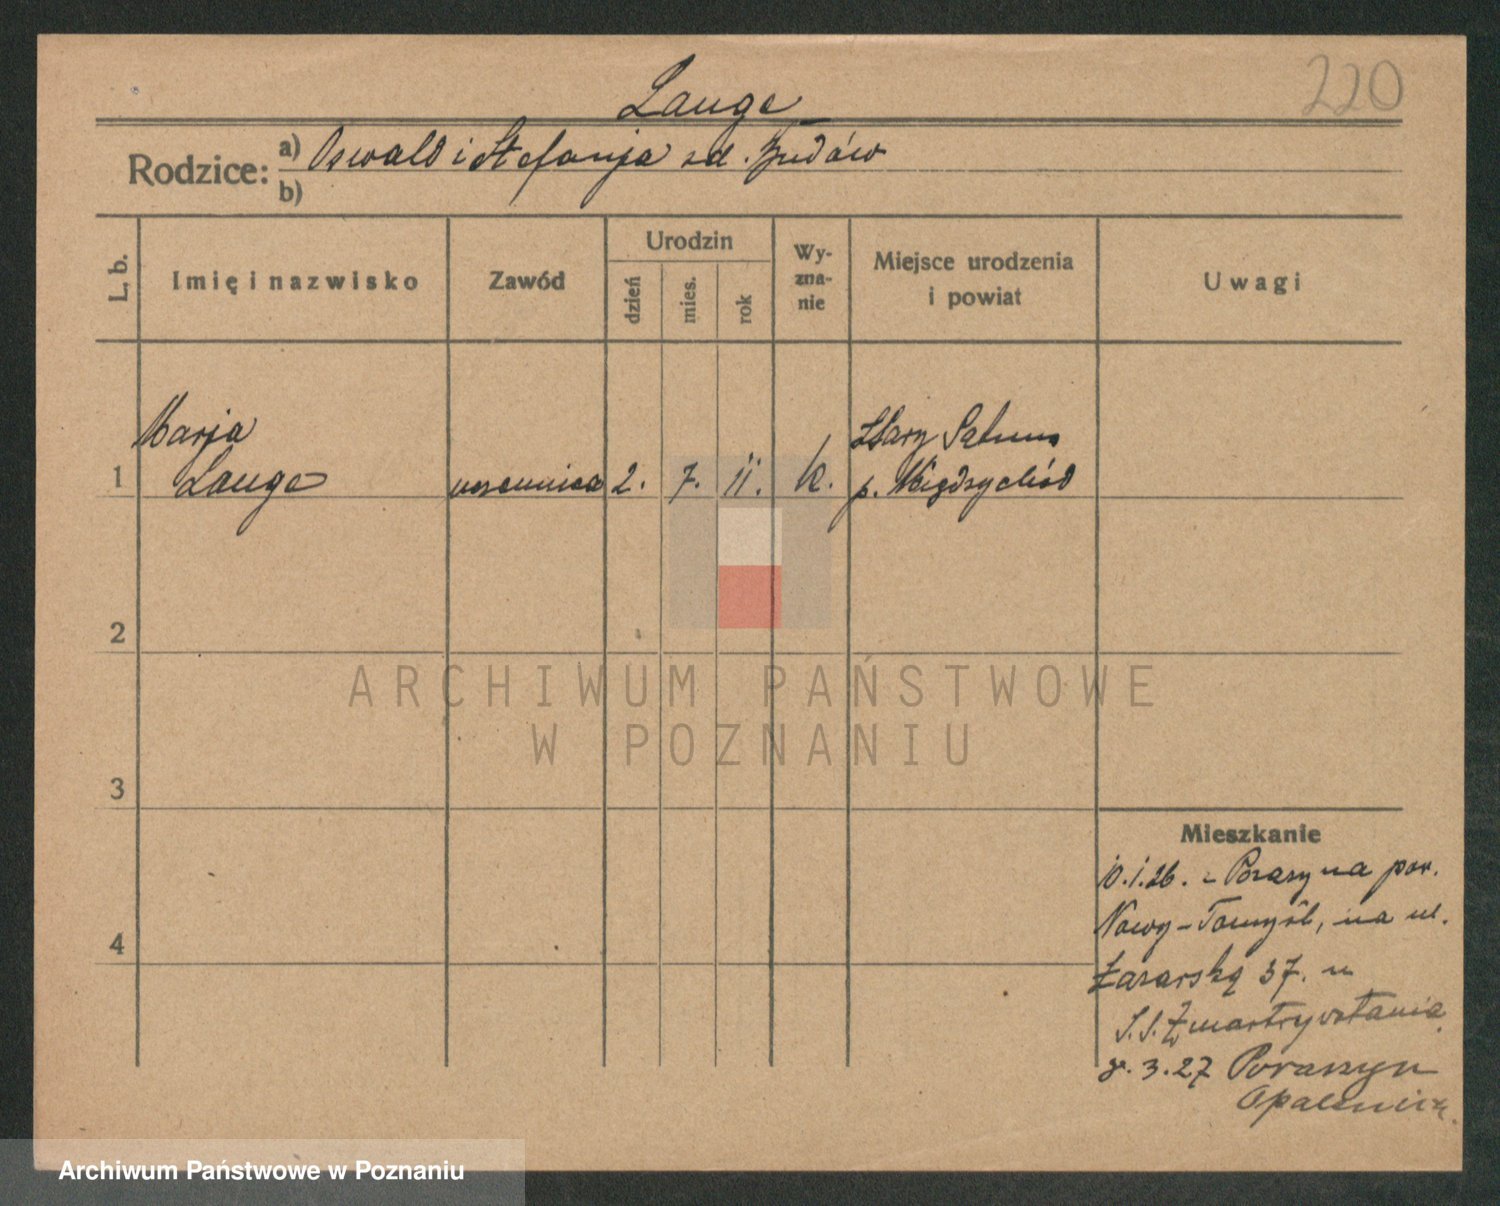 220
Lange
Rodzice: a) Oswald i Stefanja zd. Budów
b)
L. b.
Imię i nazwisko
Zawód
Urodzin
dzień
mies.
rok
Wy-
zna-
nie
Miejsce urodzenia
i powiat
Uwagi
Marja
Lange
1
uczennica
2.
7.
11.
k.
Stary
p. Międzychód
2
3
4
Mieszkanie
10.1.26. z Porażyna pow.
Nowy-Tomyśl, na ul.
Łazarską 37. u
S.S. Zmartwychwstania
8.3.27 Porażyn
Opalenica
ARCHIWUM PAŃSTWOWE
W POZNANIU
Archiwum Państwowe w Poznaniu